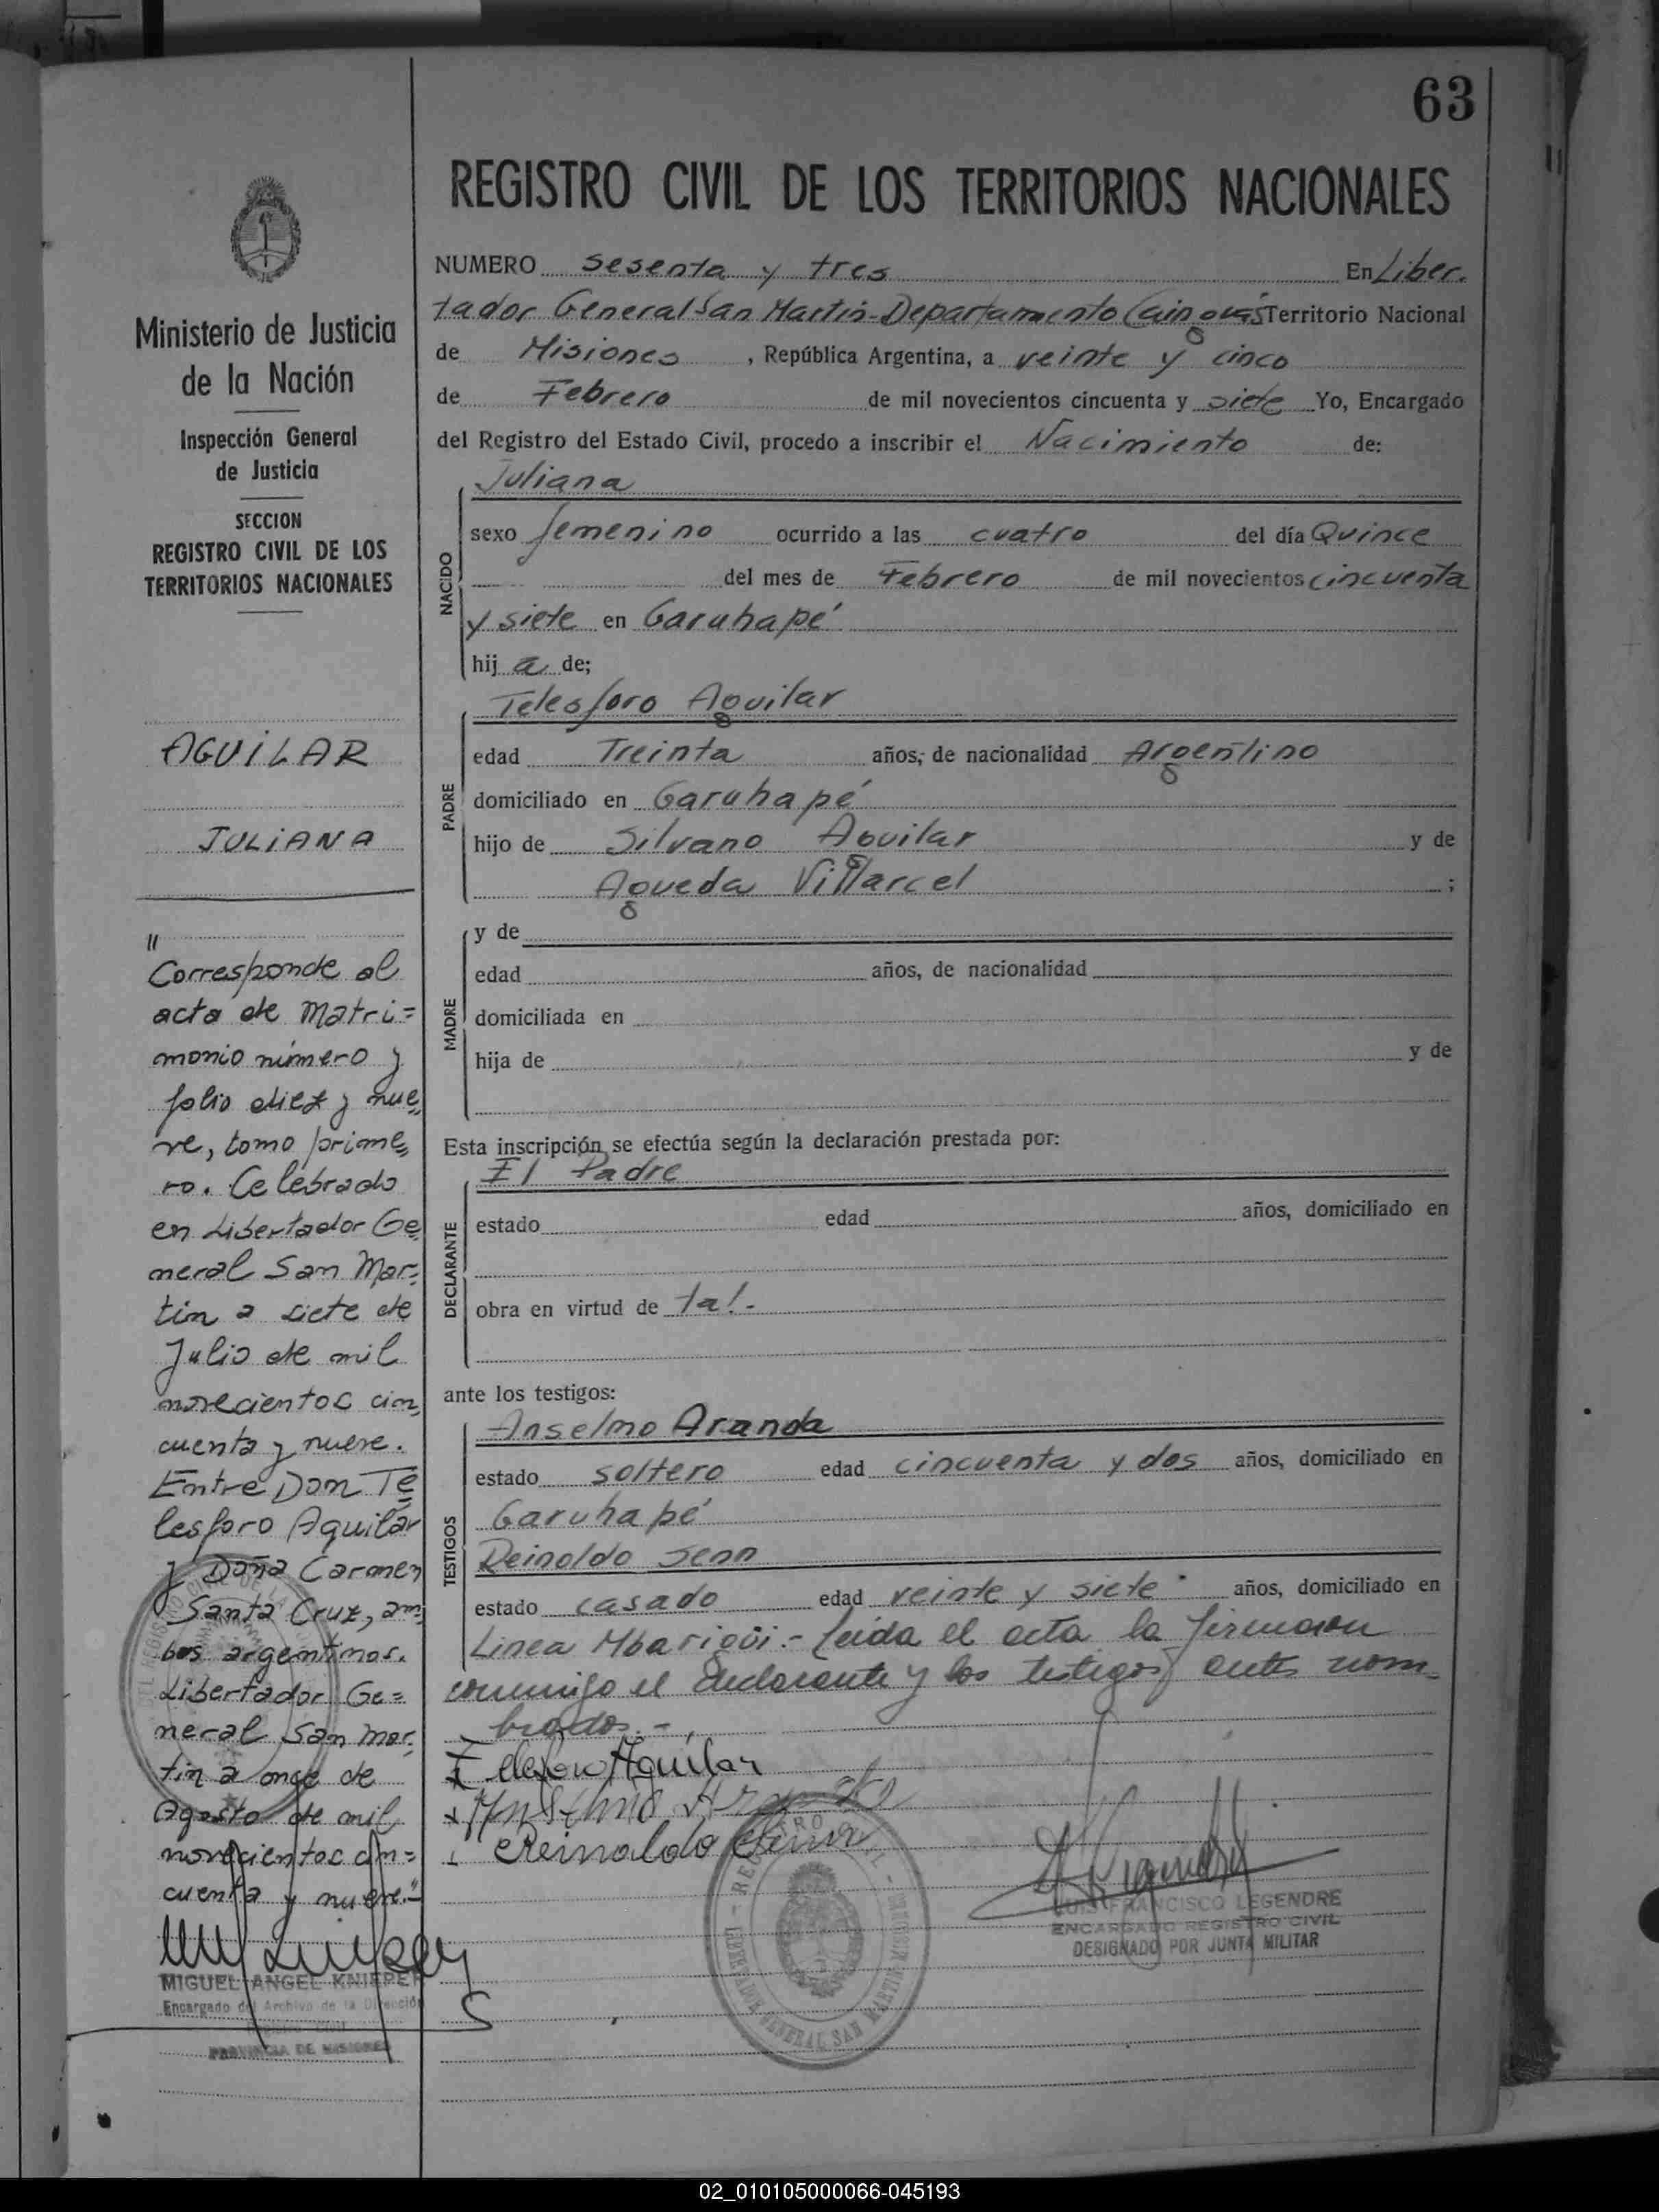 63
REGISTRO CIVIL DE LOS TERRITORIOS NACIONALES
Ministerio de Justicia
de la Nación
Inspección General
de Justicia
SECCION
REGISTRO CIVIL DE LOS
TERRITORIOS NACIONALES
AGUILAR
JULIANA
"
Corresponde al
acta de Matri=
monio número y
folio diez y nue
ve, tomo prime
ro. Celebrado
en Libertador Ge
neral San Mar=
tin a siete de
Julio de mil
novecientos cin
cuenta y nueve.
Entre Don Te
lesforo Aguilar
y Doña Carmen
Santa Cruz, am
bos argentinos.
Libertador Ge=
neral San Mar
tin a onze de
Agosto de mil
novecientos cin=
cuenta y nueve."
MIGUEL ANGEL KNIEPER
Encargado del Archivo de la Dirección
Registro Civil
PROVINCIA DE MISIONES
NUMERO sesenta y tres En Liber.
tador General San Martin-Departamento Cainguás Territorio Nacional
de Misiones, República Argentina, a veinte y cinco
de Febrero de mil novecientos cincuenta y siete Yo, Encargado
del Registro del Estado Civil, procedo a inscribir el Nacimiento de:
NACIDO
Juliana
sexo femenino ocurrido a las cuatro del día Quince
del mes de Febrero de mil novecientos cincuenta
y siete en Garuhapé
hij a de;
PADRE
Telesforo Aguilar
edad Treinta años; de nacionalidad Argentino
domiciliado en Garuhapé
hijo de Silvano Aguilar y de
Agueda Villarcel ;
MADRE
y de
edad años, de nacionalidad
domiciliada en
hija de y de
Esta inscripción se efectúa según la declaración prestada por:
DECLARANTE
El Padre
estado edad años, domiciliado en
obra en virtud de tal.-
ante los testigos:
TESTIGOS
Anselmo Aranda
estado soltero edad cincuenta y dos años, domiciliado en
Garuhapé
Reinoldo Senn
estado casado edad veinte y siete años, domiciliado en
Linea Mbarigüi.- Leida el acta la firmaron
conmigo el declarante y los testigos antes nom-
brados.-
Telesforo Aguilar
Anselmo Aranda
Reinoldo Senn
REGISTRO CIVIL
LIBERTADOR GENERAL SAN MARTIN
LUIS FRANCISCO LEGENDRE
ENCARGADO REGISTRO CIVIL
DESIGNADO POR JUNTA MILITAR
02_010105000066-045193